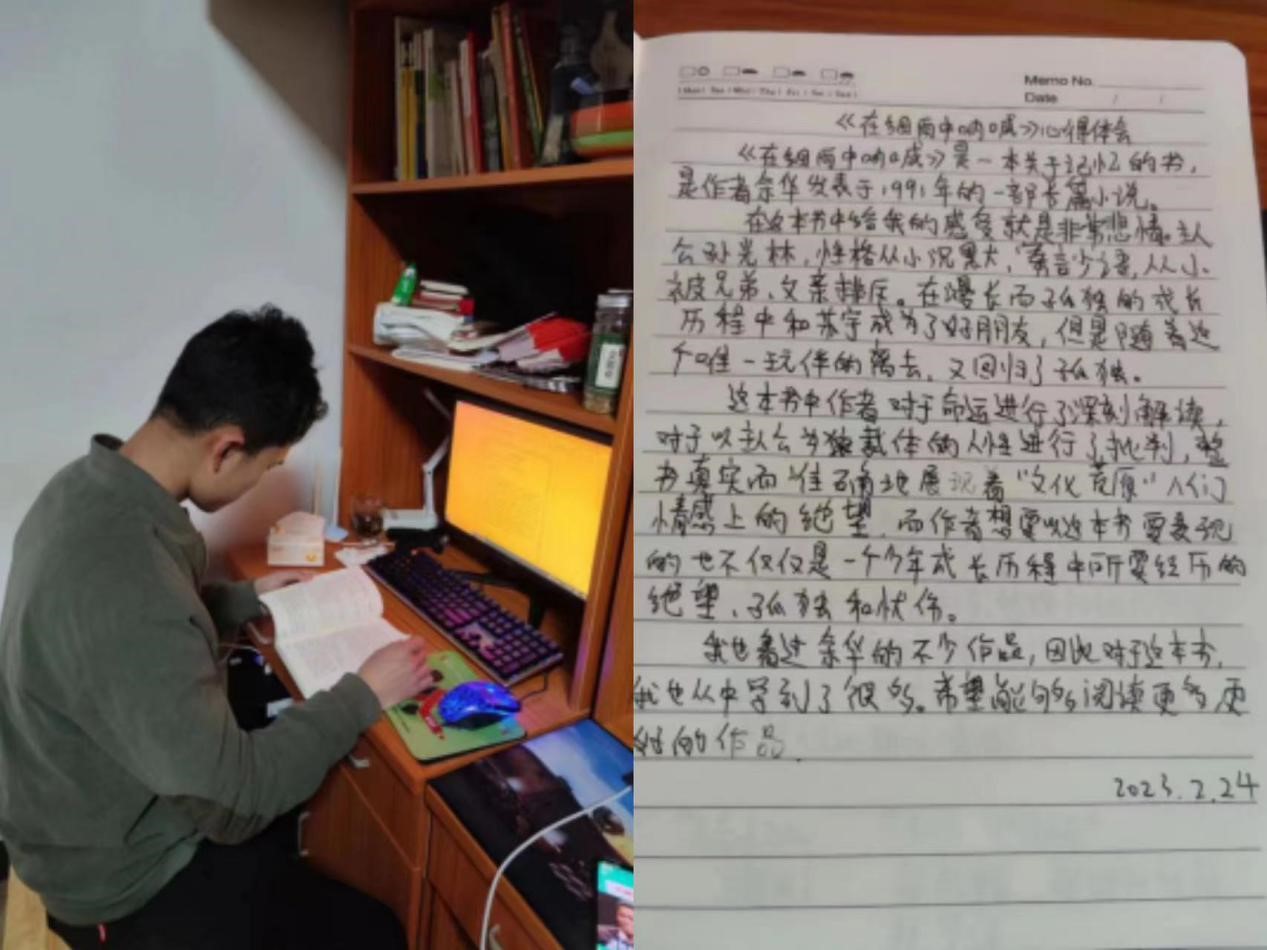 Memo No.
Date / /
《在细雨中呐喊》心得体会
《在细雨中呐喊》是一本关于记忆的书,
是作者余华发表于1991年的一部长篇小说。
在这本书中给我的感受就是非常悲情。主人
公孙光林,性格从小沉默,寡言少语,从小
被兄弟、父亲排斥。在漫长而孤独的成长
历程中和苏宇成为了好朋友,但是随着这
个唯一玩伴的离去,又回归了孤独。
这本书中作者对于命运进行了深刻解读,
对于以主人公为载体的人性进行了批判,整
书真实而准确地展现着“文化荒原”人们
情感上的绝望,而作者想要以这本书要表现
的也不仅仅是一个少年成长历程中所要经历的
绝望、孤独和忧伤。
我也看过余华的不少作品,因此对于这本书,
我也从中学到了很多。希望能够阅读更多更
好的作品.
2023.2.24